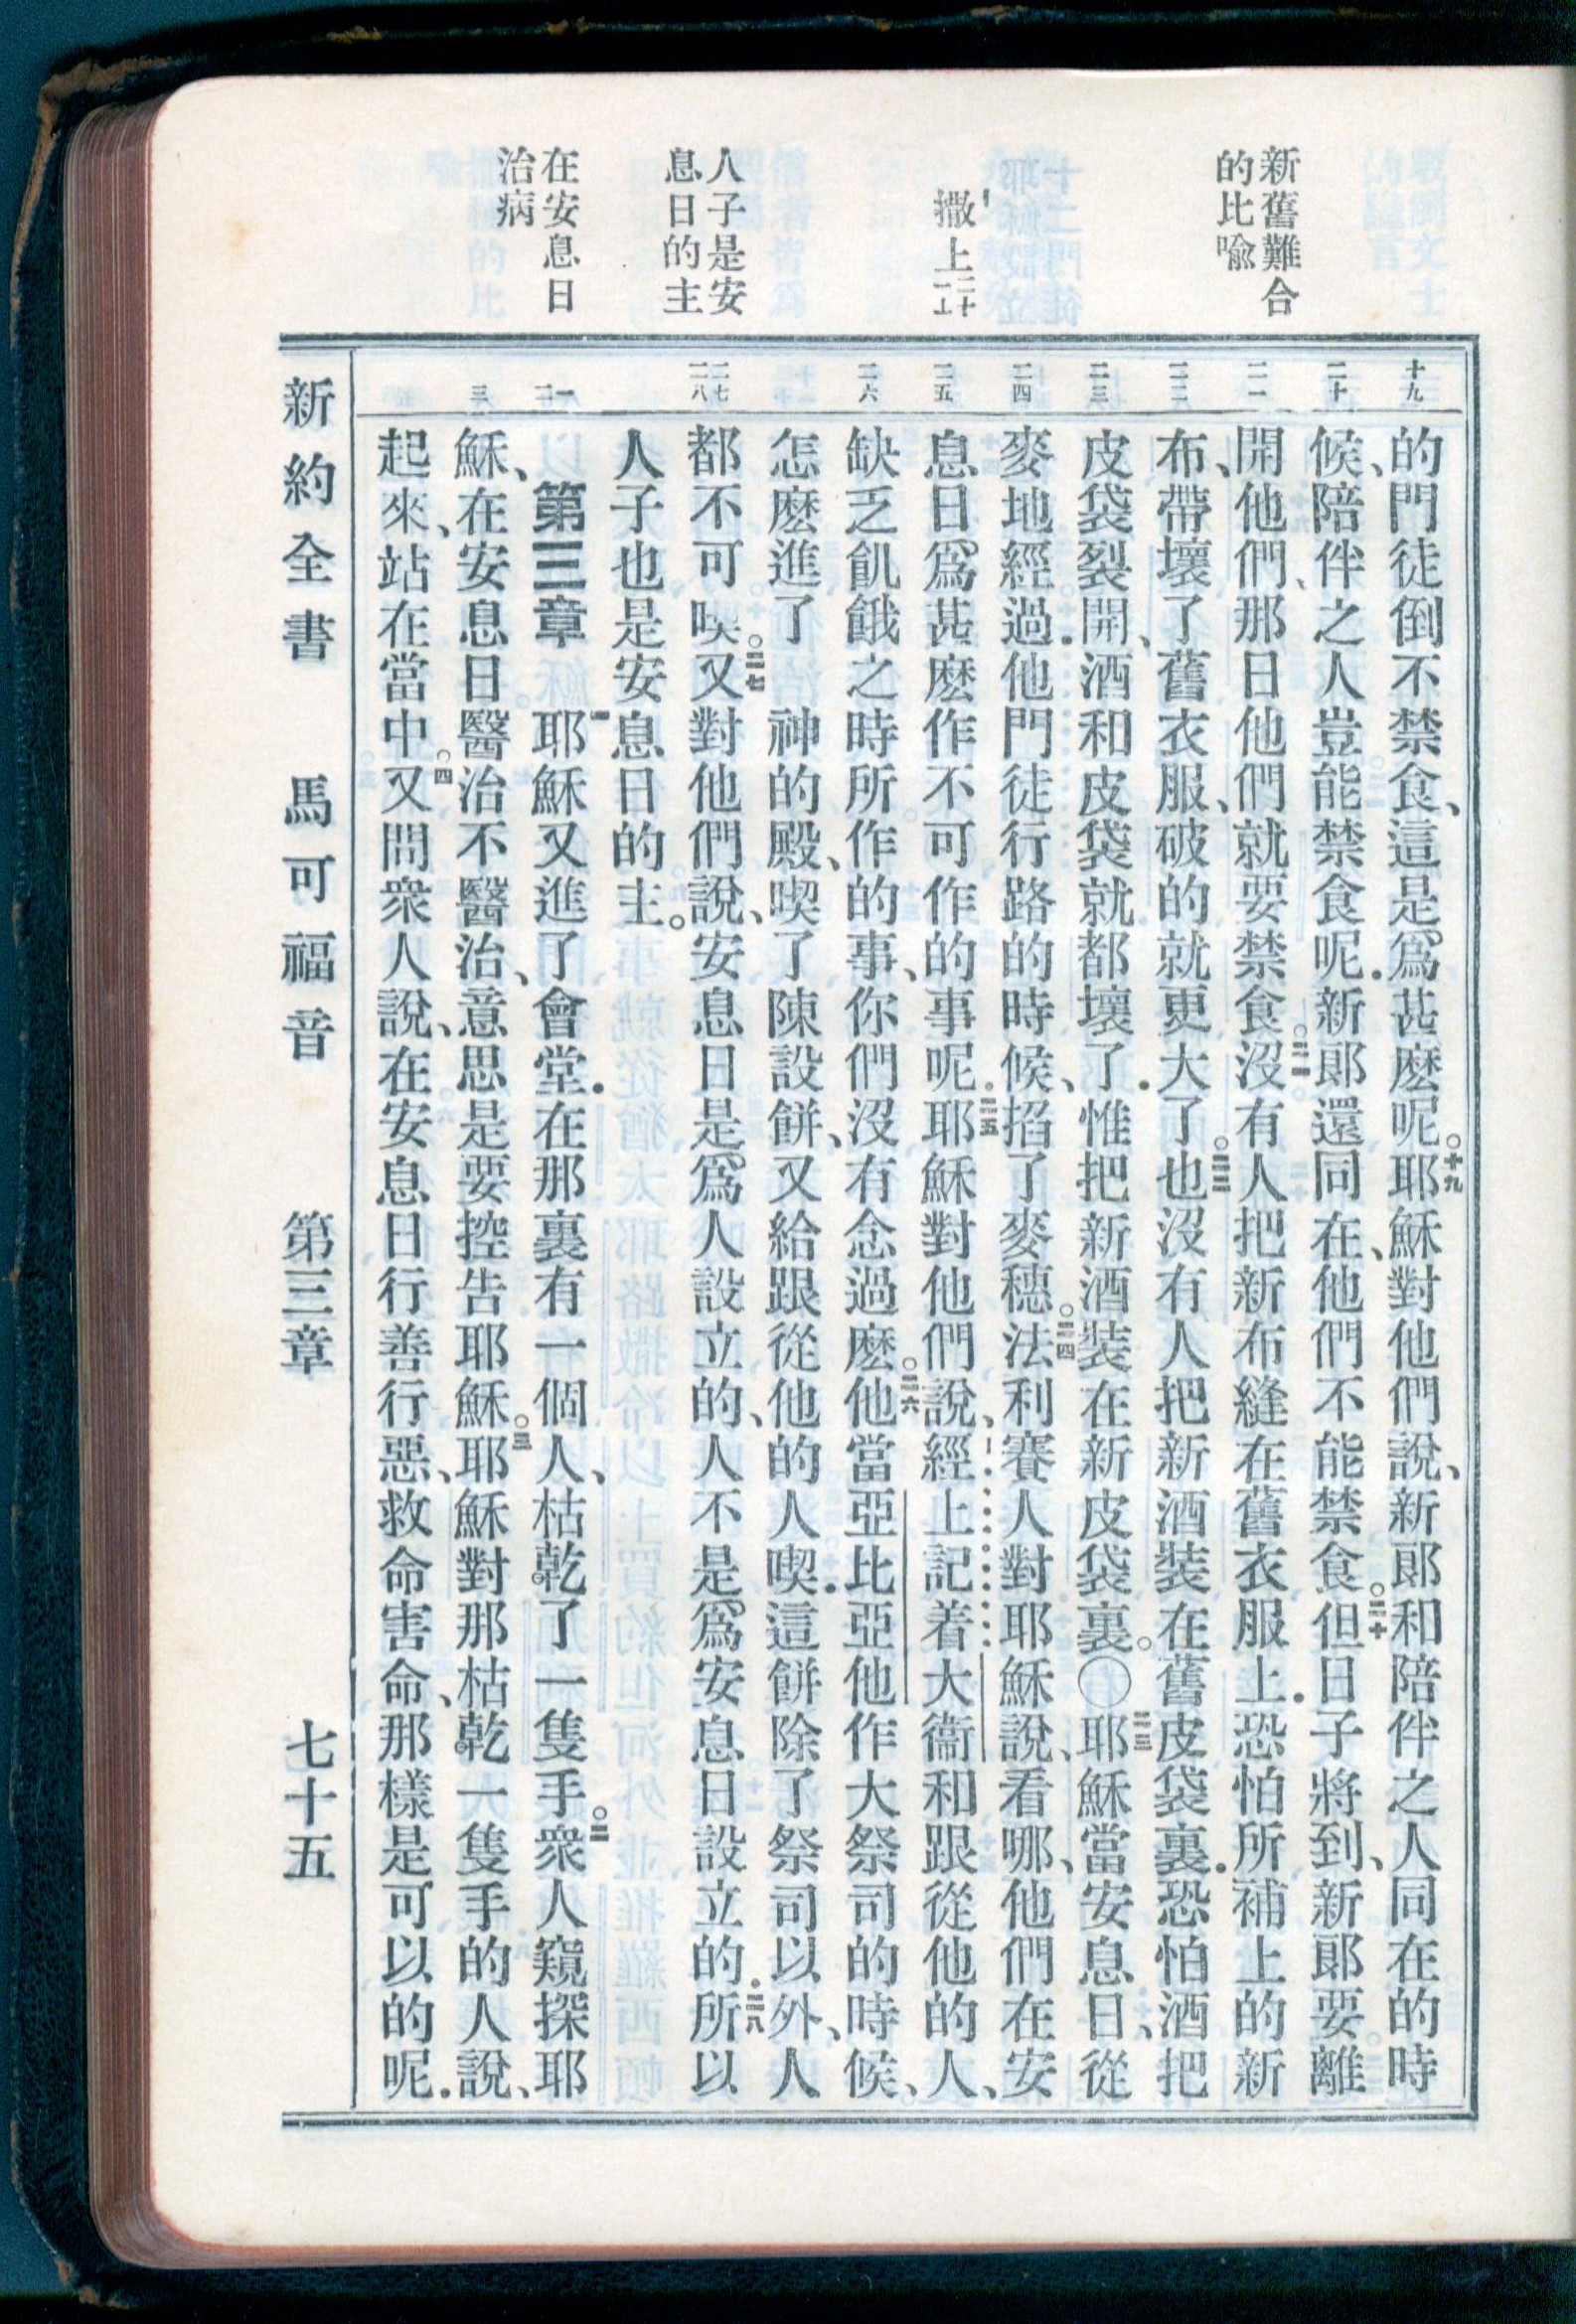 新舊難合
的比喻
撒上二十一
人子是安
息日的主
在安息日
治病
十九 二十 二一 二二 二三 二四 二五 二六 二七 二八 一 二 三
的門徒倒不禁食、這是爲甚麽呢。十九耶穌對他們說、新郎和陪伴之人同在的時
候、陪伴之人豈能禁食呢.新郎還同在、他們不能禁食。二十但日子將到、新郎要離
開他們、那日他們就要禁食。二一沒有人把新布縫在舊衣服上.恐怕所補上的新
布、帶壞了舊衣服、破的就更大了。二二也沒有人把新酒裝在舊皮袋裏.恐怕酒把
皮袋裂開、酒和皮袋就都壞了.惟把新酒裝在新皮袋裏。〇二三耶穌當安息日、從
麥地經過.他門徒行路的時候、掐了麥穗。二四法利賽人對耶穌說、看哪、他們在安
息日爲甚麽作不可作的事呢.二五耶穌對他們說、經上記着大衞和跟從他的人、
缺乏飢餓之時所作的事、你們沒有念過麽。二六他當亞比亞他作大祭司的時候、
怎麽進了 神的殿、喫了陳設餅、又給跟從他的人喫.這餅除了祭司以外、人
都不可喫。二七又對他們說、安息日是爲人設立的、人不是爲安息日設立的.二八所以
人子也是安息日的主。
第三章 一耶穌又進了會堂.在那裏有一個人、枯乾了一隻手。二衆人窺探耶
穌、在安息日醫治不醫治、意思是要控告耶穌。三耶穌對那枯乾一隻手的人說、
起來、站在當中。四又問衆人說、在安息日行善行惡、救命害命、那樣是可以的呢.
新約全書 馬可福音 第三章 七十五